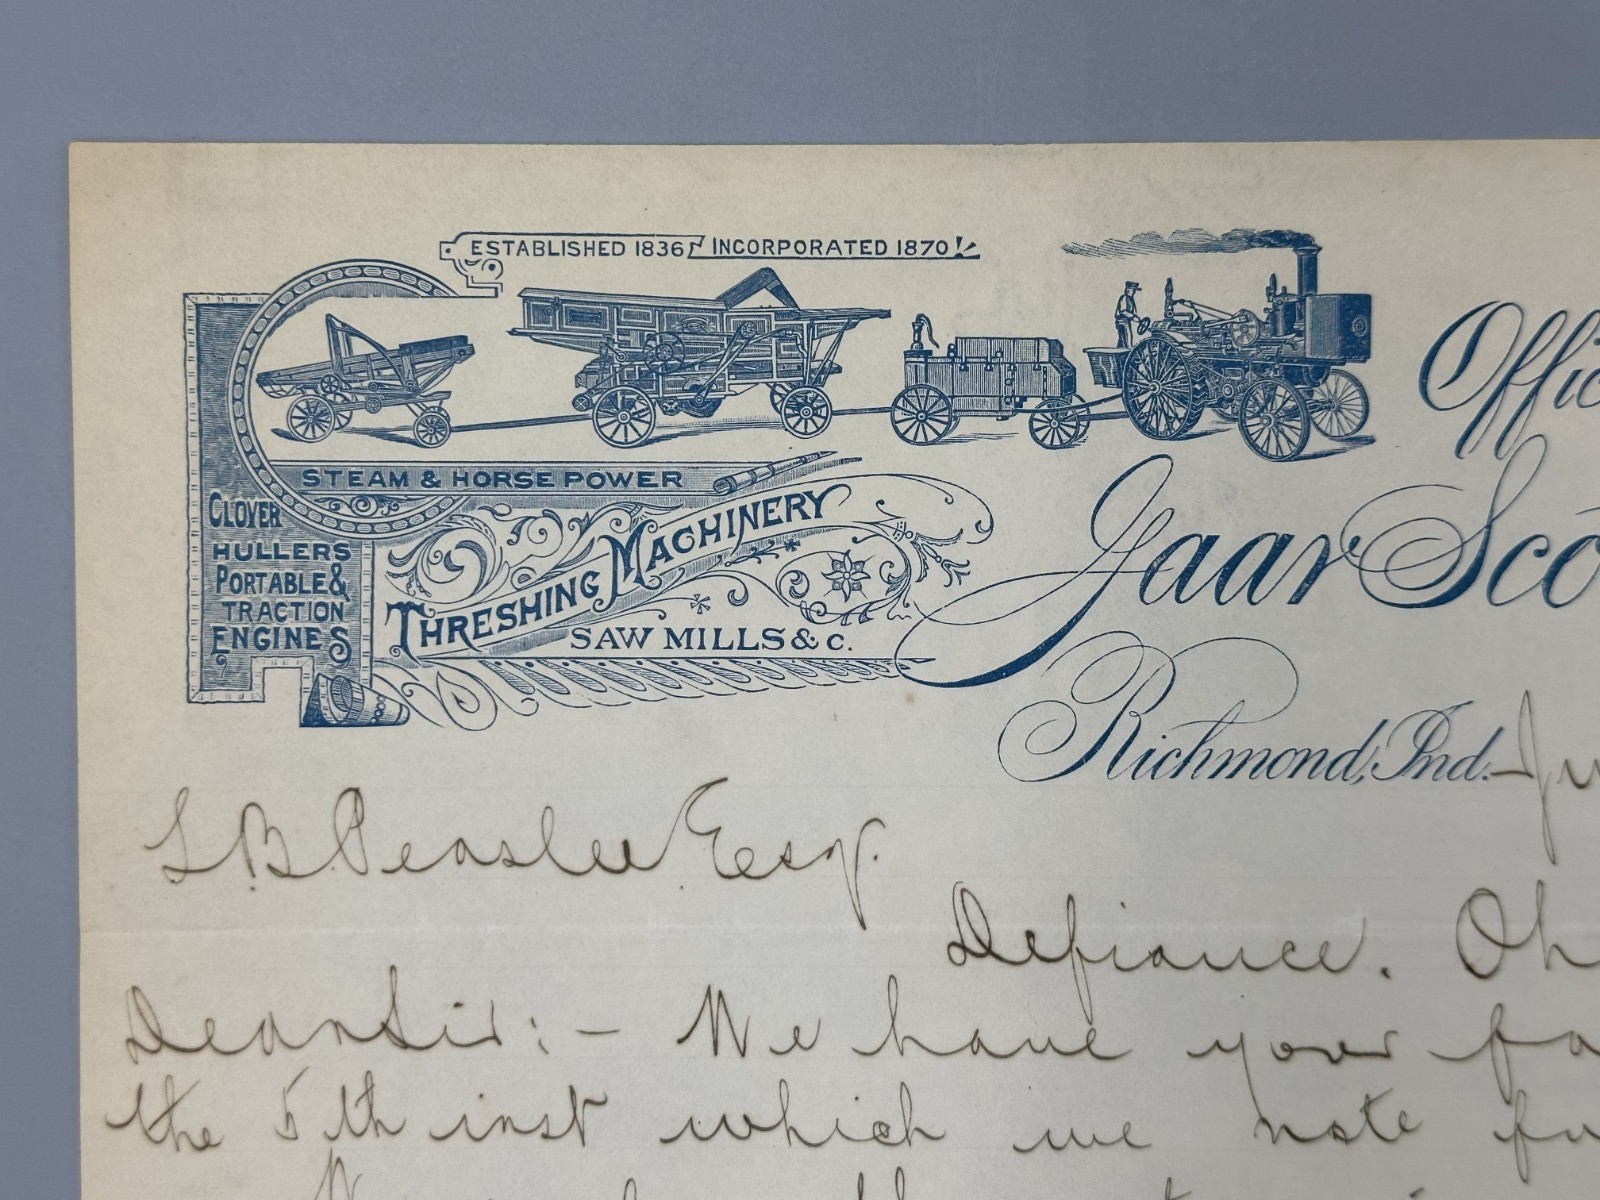 ESTABLISHED 1836 INCORPORATED 1870
Offic
STEAM & HORSE POWER
CLOVER
HULLERS
PORTABLE &
TRACTION
ENGINES
THRESHING MACHINERY
SAW MILLS & C.
Gaar Sco
Richmond, Ind.
L. B. Peaslee Esq.
Defiance. Oh
Dear Sir:- We have your fa
the 5th inst which we note fu